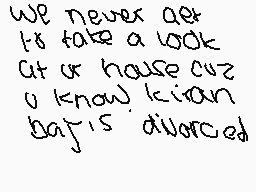 we never get
to take a look
at ur house cuz
u know kiran
baj is divorced